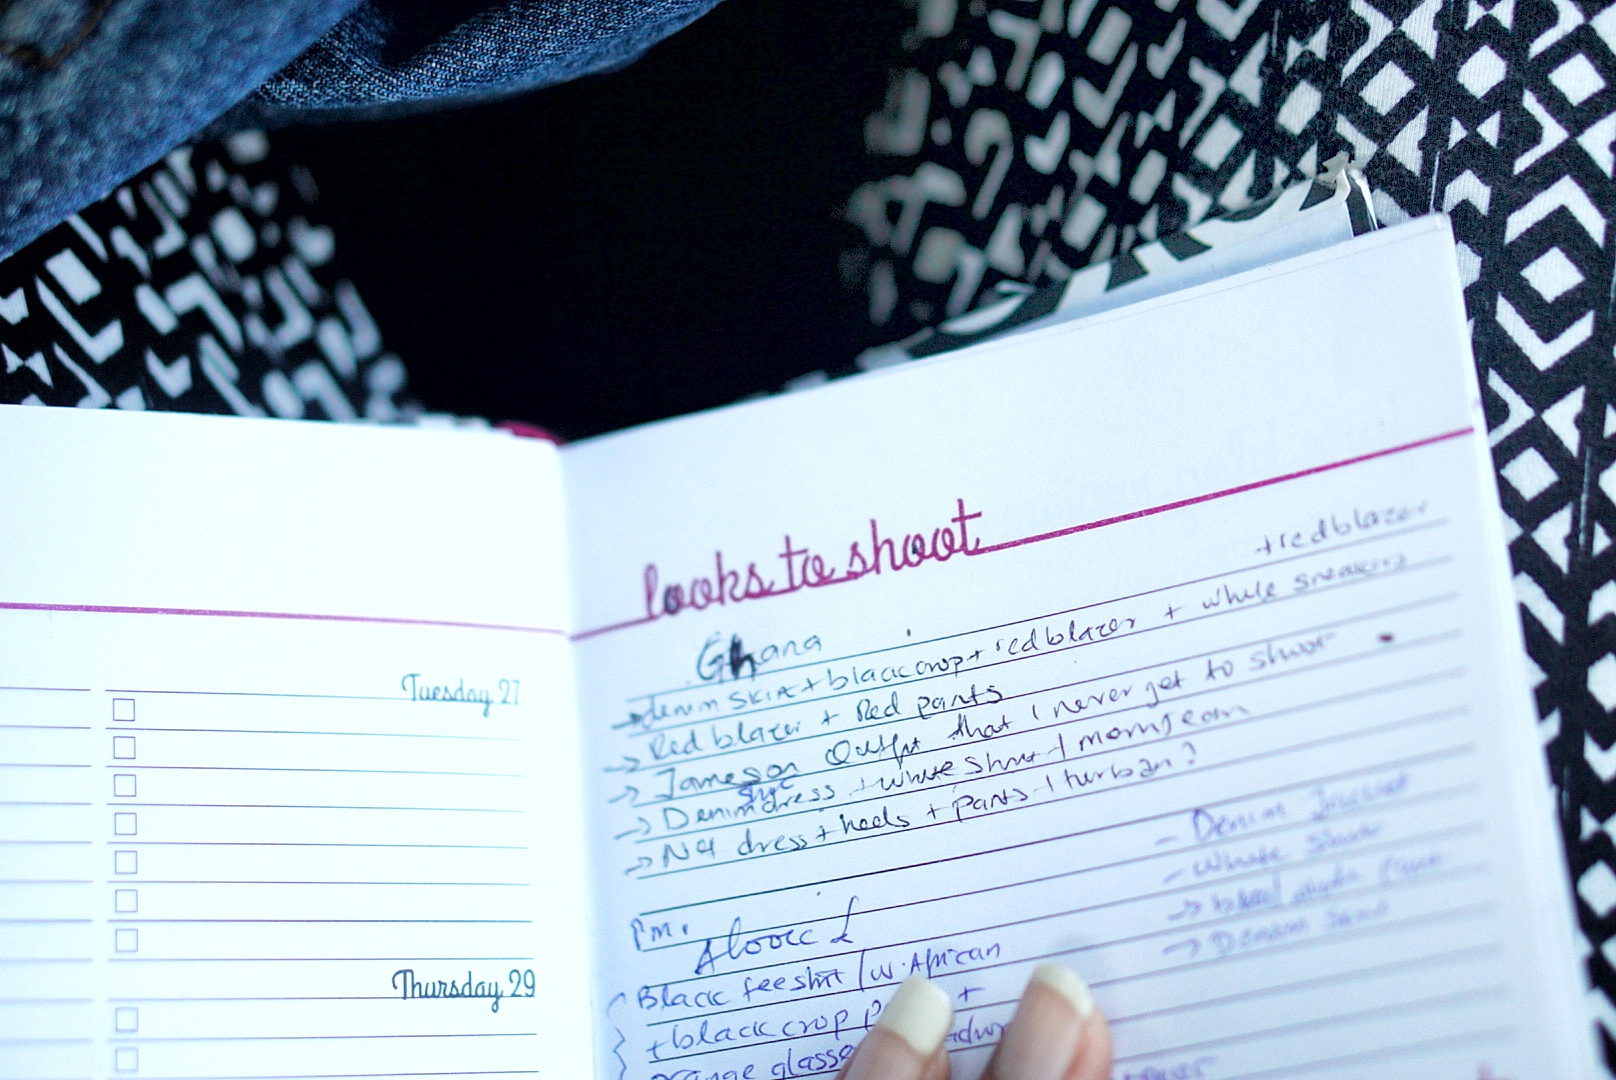 Tuesday 27
Thursday 29
looks to shoot
Ghana
+ red blazer
→ denim skirt + black crop + red blazer + white sneakers
→ Red blazer + Red pants
→ Jameson Outfit that I never get to shoot
→ Denim dress + white shirt + momjean
→ Net dress + heels + pants + turban?
- Denim
- White
→ Denim
Pm.
Black tee shirt / w. African
+ black crop +
orange glasse